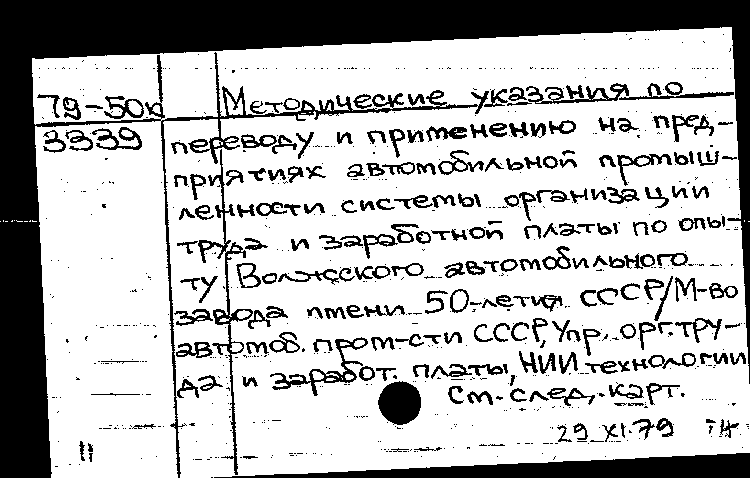 79-50к Методические указания по
3339 переводу и применению на пред-
приятиях автомобильной промыш-
ленности системы организации
труда и заработной платы по опы-
ту Волжского автомобильного
завода имени 50-летия СССР/М-во
автомоб. пром-сти СССР, Упр. орг. тру-
да и заработ. платы, НИИ технологии
См. след. карт.
29 XI.79
11